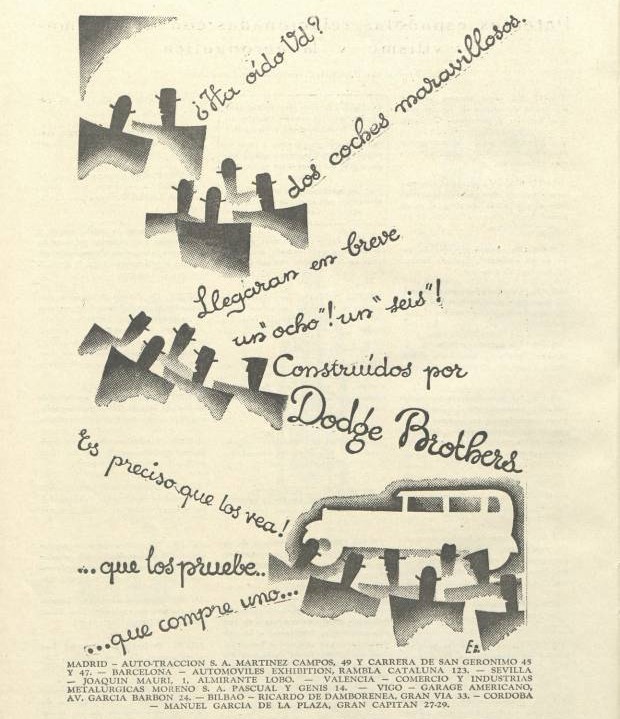 ¿Ha oído Vd?
dos coches maravillosos.
Llegaran en breve
un "ocho"! un "seis"!
Construídos por
Dodge Brothers
Es preciso que los vea!
...que los pruebe..
...que compre uno...
MADRID — AUTO-TRACCION S. A. MARTINEZ CAMPOS, 49 Y CARRERA DE SAN GERONIMO 45
Y 47. — BARCELONA — AUTOMOVILES EXHIBITION, RAMBLA CATALUNA 123. — SEVILLA
— JOAQUIN MAURI, 1, ALMIRANTE LOBO. — VALENCIA — COMERCIO Y INDUSTRIAS
METALURGICAS MORENO S. A. PASCUAL Y GENIS 14. — VIGO — GARAGE AMERICANO,
AV. GARCIA BARBON 24. — BILBAO — RICARDO DE DAMBORENEA, GRAN VIA 33. — CORDOBA
— MANUEL GARCIA DE LA PLAZA, GRAN CAPITAN 27-29.